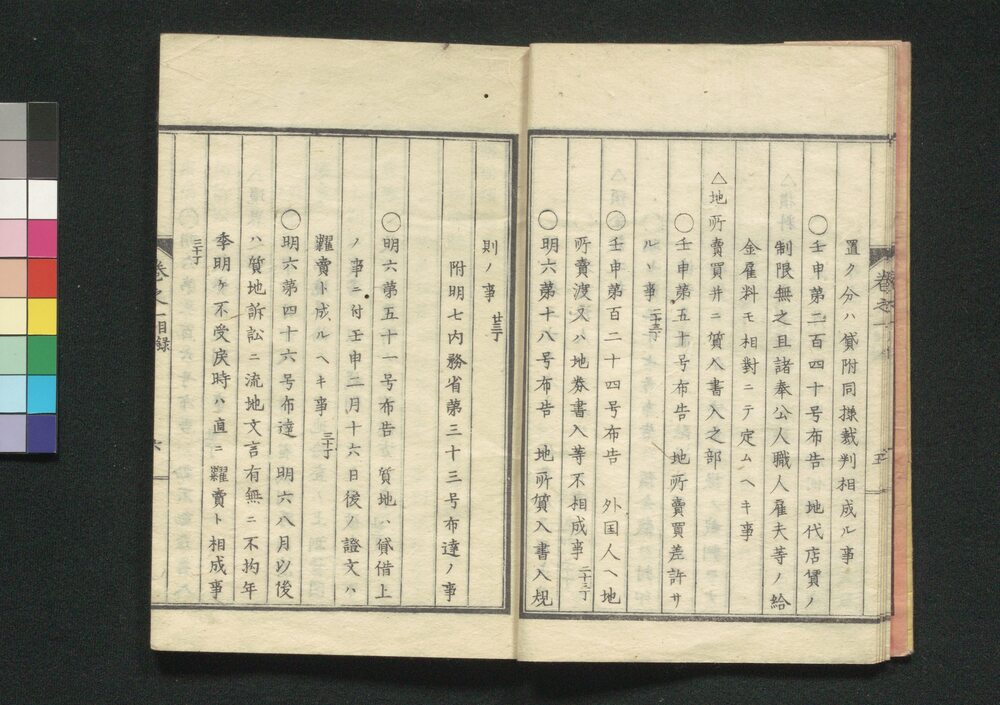 置ク分ハ貸附同様裁判相成ル事
◯壬申第二百四十号布告 地代店賃ノ
制限無之且諸奉公人職人雇夫等ノ給
金雇料モ相對ニテ定ムヘキ事
△地所賣買并ニ質入書入之部
◯壬申第五十号布告 地所賣買差許サ
ルヽ事 二十三丁
◯壬申第百二十四号布告 外国人ヘ地
所賣渡又ハ地券書入等不相成事 二十三丁
◯明六第十八号布告 地所質入書入規
則ノ事 廿三丁
附明七内務省第三十三号布達ノ事
◯明六第五十一号布告 質地ハ貸借上
ノ事ニ付壬申二月十六日後ノ證文ハ
糶賣ト成ルヘキ事 三十丁
◯明六第四十六号布達 明六八月以後
ハ質地訴訟ニ流地文言有無ニ不拘年
季明ケ不受戻時ハ直ニ糶賣ト相成事
三十丁
卷之一目録
卷之一
五